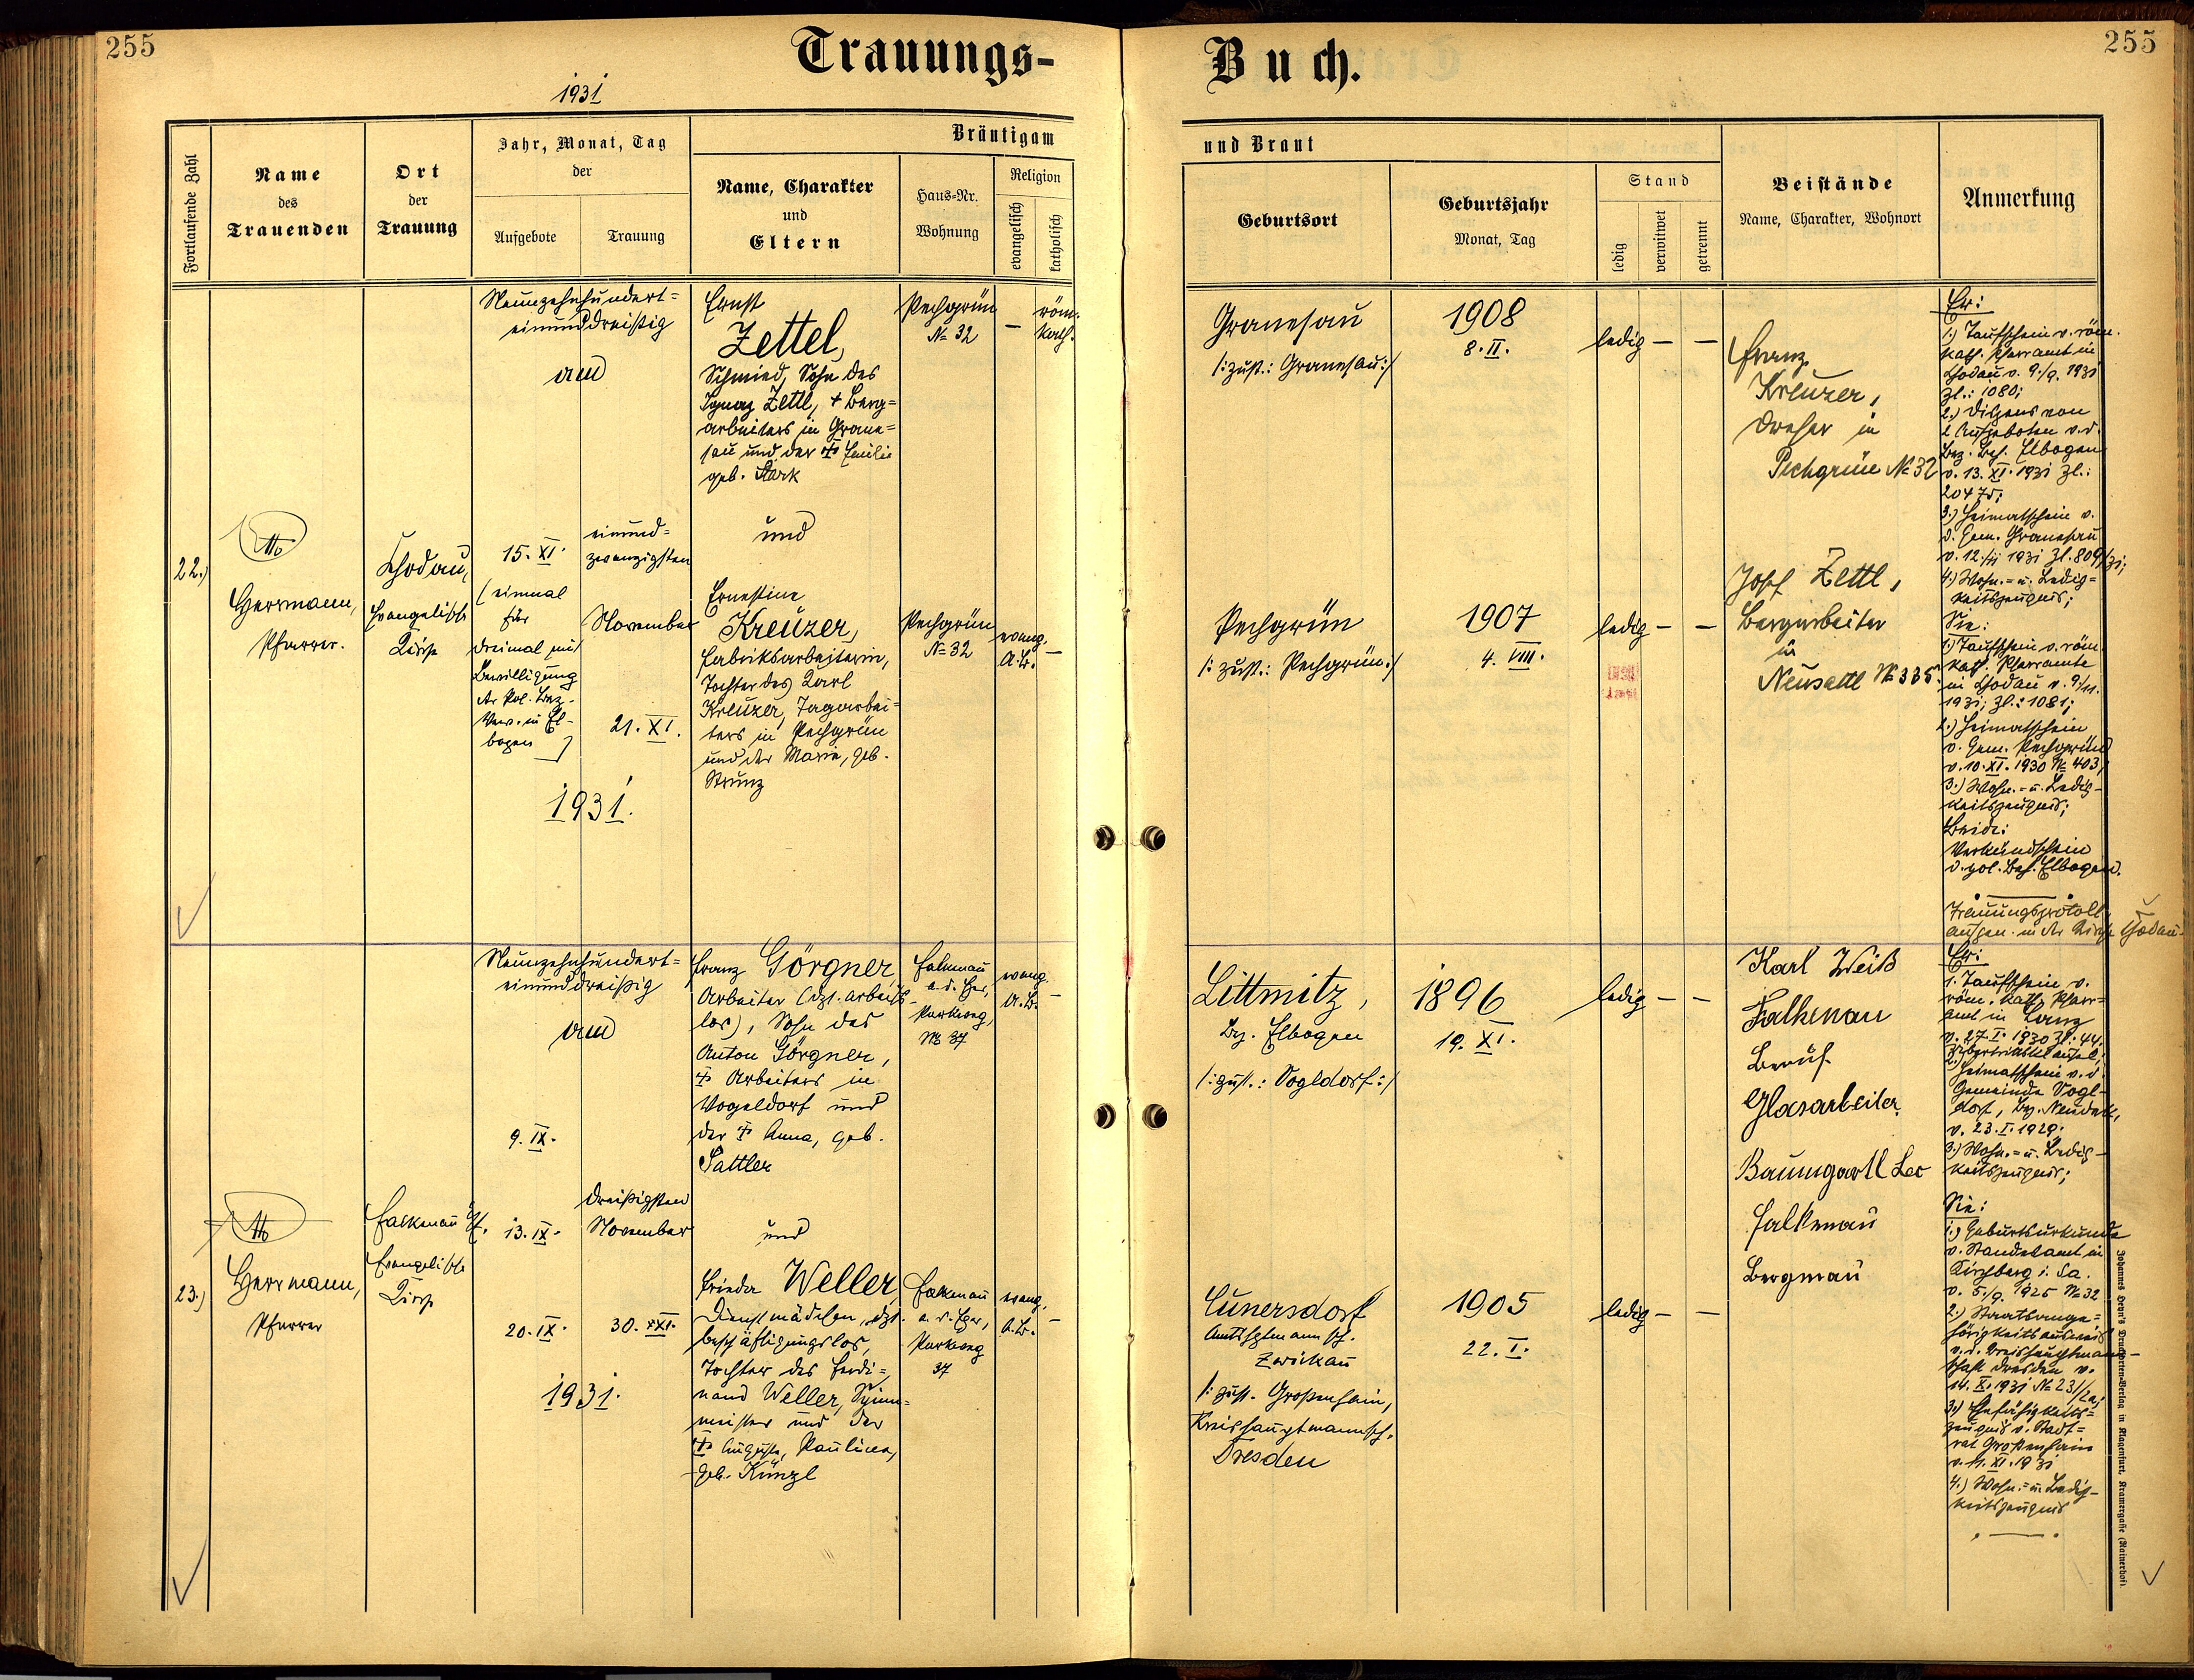 255
Trauungs-
Buch.
255
1931
Fortlaufende Zahl
Name
des
Trauenden
Ort
der
Trauung
Jahr, Monat, Tag
der
Aufgebote
Trauung
Bräutigam
Name, Charakter
und
Eltern
Haus-Nr.
Wohnung
Religion
evangelisch
katholisch
und Braut
Geburtsort
Geburtsjahr
Monat, Tag
Stand
ledig
verwitwet
getrennt
Beistände
Name, Charakter, Wohnort
Anmerkung
22.)
Otto
Herrmann,
Pfarrer.
Chodau,
Evangelische
Kirche
Neunzehnhundert=
einunddreißig
am
15. XI.
(einmal
für
dreimal mit
Bewilligung
der Pol. Bez.-
Verw. in El-
bogen)
einund=
zwanzigsten
November
21. XI.
1931.
Ernst
Zettel,
Schmied, Sohn des
Ignaz Zettl, + Berg=
arbeiters in Grane=
sau und der + Emilie
geb. Stark
und
Ernestine
Kreuzer,
Fabriksarbeiterin,
Tochter des Karl
Kreuzer, Tagarbei=
ters in Pechgrün
und der Marie, geb.
Strunz
Pechgrün
No 32
—
röm.
kath.
Pechgrün
No 32
evang.
A.B.
—
Granesau
/: zust.: Granesau :/
1908
8. II.
ledig — —
Pechgrün
/: zust.: Pechgrün :/
1907
4. VIII.
ledig — —
Franz
Kreuzer,
Dreher in
Pechgrün No 32
Josef Zettl,
Bergarbeiter
in
Neusattl No 335
Er:
1.) Taufschein v. röm.
kath. Pfarramt in
Chodau v. 9./9. 1931
Zl.: 1080;
2.) Dispens von
2 Aufgeboten v. d.
Bez. Beh. Elbogen
v. 13. XI. 1931 Zl.:
20475;
3.) Heimatschein v.
d. Gem. Granesau
v. 12./11 1931 Zl. 809/31;
4.) Wohn.= u. Ledig=
keitszeugnis;
Sie:
1.) Taufschein v. röm.
kath. Pfarramte
in Chodau v. 9./11.
1931; Zl.: 1081;
2.) Heimatschein
v. Gem. Pechgrün
v. 10. XI. 1930 No 403;
3.) Wohn.= u. Ledig-
keitszeugnis;
Beide:
Verkündschein
d. pol. Beh. Elbogen.
Trauungsprotoll
aufgen. in der Kirche Chodau.
23.)
Otto
Herrmann,
Pfarrer
Falkenau
Evangelische
Kirche
Neunzehnhundert=
einunddreißig
am
9. IX.
13. IX.
20. IX.
dreißigsten
November
30. XI.
1931.
Franz Görgner,
Arbeiter (dzt. arbeits-
los), Sohn des
Anton Görgner,
+ Arbeiters in
Vogeldorf und
der + Anna, geb.
Sattler
und
Frieda Weller,
Dienstmädchen, dzt.
beschäftigungslos,
Tochter des Ferdi=
nand Weller, Spinn=
meister und der
+ Auguste, Pauline,
geb. Künzl
Falkenau
a. d. Eger,
Parkweg,
No 37
evang.
A.B.
—
Falkenau
a. d. Eger,
Parkweg
37
evang.
A.B.
—
Littmitz,
Bez. Elbogen
/: zust.: Vogldorf :/
1896
19. XI.
ledig — —
Cunersdorf
Amtshptmannsch.
Zwickau
/: zust. Großenhain,
Kreishauptmannsch.
Dresden
1905
22. I.
ledig — —
Karl Weiß
Falkenau
Beruf
Glasarbeiter
Baumgartl Leo
Falkenau
Bergmau
Er:
1. Taufschein v.
röm. kath. Pfarr=
amt in Lanz
v. 27. I. 1930 Zl. 44.
2.) Heimatschein v. d.
Gemeinde Vogl-
dorf, Bez. Neudek,
v. 23. I. 1929.
3.) Wohn.= u. Ledig-
keitszeugnis;
Sie:
1.) Geburtsurkunde
v. Standesamt in
Kirchberg i. Sa.
v. 5./9. 1925 No 32
2.) Staatsange=
hörigkeitsausweis
v. d. Kreishauptmann-
schaft Dresden v.
14. X. 1931
3.) Ehefähigkeits=
zeugnis v. Stadt=
rat Großenhain
v. 11. XI. 1931
4.) Wohn.= u. Ledig-
keitszeugnis
Johannes Heyn's Drucksorten-Verlag in Klagenfurt, Kramergasse (Rainerhof).